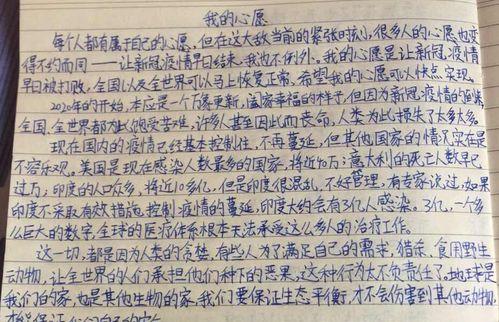 我的心愿
每个人都有属于自己的心愿,但在这大敌当前的紧张时刻,很多人的心愿也变
得不约而同——让新冠疫情早日结束,我也不例外。我的心愿是让新冠疫情
早日被打败,全国以及全世界可以马上恢复正常,希望我的心愿可以快点实现。
2020年的开始,本应是一个万象更新,阖家幸福的样子,但因为新冠疫情的到来
全国、全世界都为此饱受苦难,许多人甚至因此而丧命,人类为此损失了太多太多。
现在国内的疫情已经基本控制住,不再蔓延,但其他国家的情况实在是
不容乐观。美国是现在感染人数最多的国家,将近10万;意大利的死亡人数早已
过万;印度的人口众多,将近10多亿,但是印度很混乱,不好管理,有专家说过,如果
印度不采取有效措施,控制疫情的蔓延,印度大约会有3亿人感染。3亿,一个多
么巨大的数字,全球的医疗体系根本无法承受这么多人的治疗工作。
这一切,都是因为人类的贪婪,有些人为了满足自己的需求,猎杀、食用野生
动物,让全世界的人们承担他们种下的恶果,这种行为太不负责任了,地球是
我们的家,也是其他生物的家,我们要保证生态平衡,才不会伤害到其他动物,